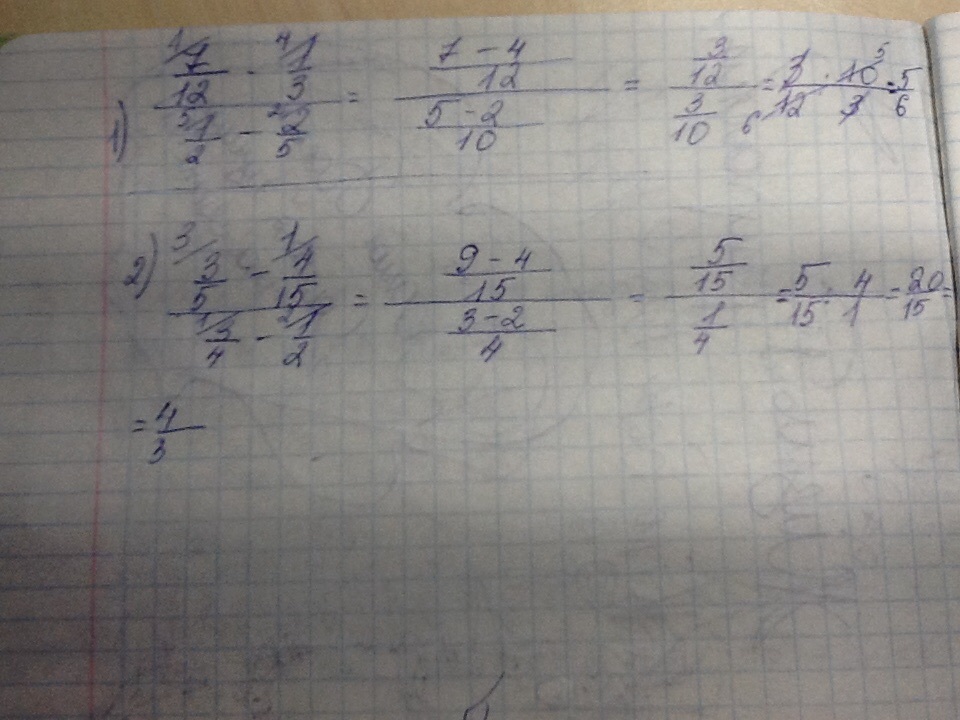 1) (¹/7/12 - ⁴/1/3) / (⁵/1/2 - ²/2/5) = ((7 - 4)/12) / ((5 - 2)/10) = (3/12) / (3/10) = 3/12 · 10/3 = 5/6
2) (³/3/5 - ¹/4/15) / (¹/3/4 - ²/1/2) = ((9 - 4)/15) / ((3 - 2)/4) = (5/15) / (1/4) = 5/15 · 4/1 = 20/15 =
= 4/3